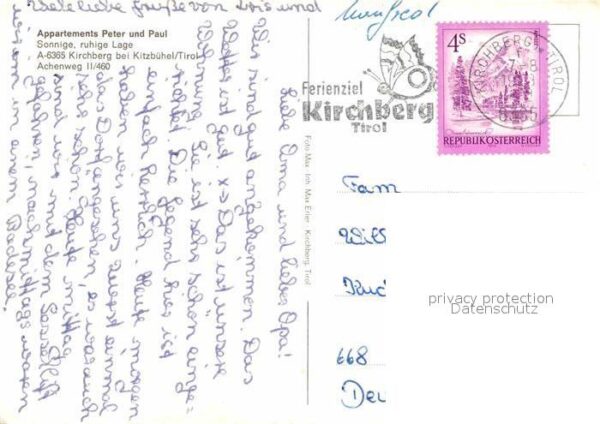 Viele liebe Grüße von Lois und
Manfred
Appartements Peter und Paul
Sonnige, ruhige Lage
A-6365 Kirchberg bei Kitzbühel/Tirol
Achenweg II/460
Liebe Oma und lieber Opa!
Wir sind gut angekommen. Das
Wetter ist gut. x = Das ist unsere
Wohnung. Sie ist sehr schön einge-
richtet. Die Gegend hier ist
einfach herrlich. Heute morgen
haben wir uns zuerst einmal
das Dorf angesehen, es war auch
sehr schön. Heute mittag
sind wir mit dem Sessellift
gefahren, nachmittags waren
wir in einem Badesee.
Foto Max Inh. Max Erler, Kirchberg, Tirol
Ferienziel
Kirchberg
Tirol
KIRCHBERG TIROL
6365
4S
REPUBLIK ÖSTERREICH
Fam
668
privacy protection
Datenschutz